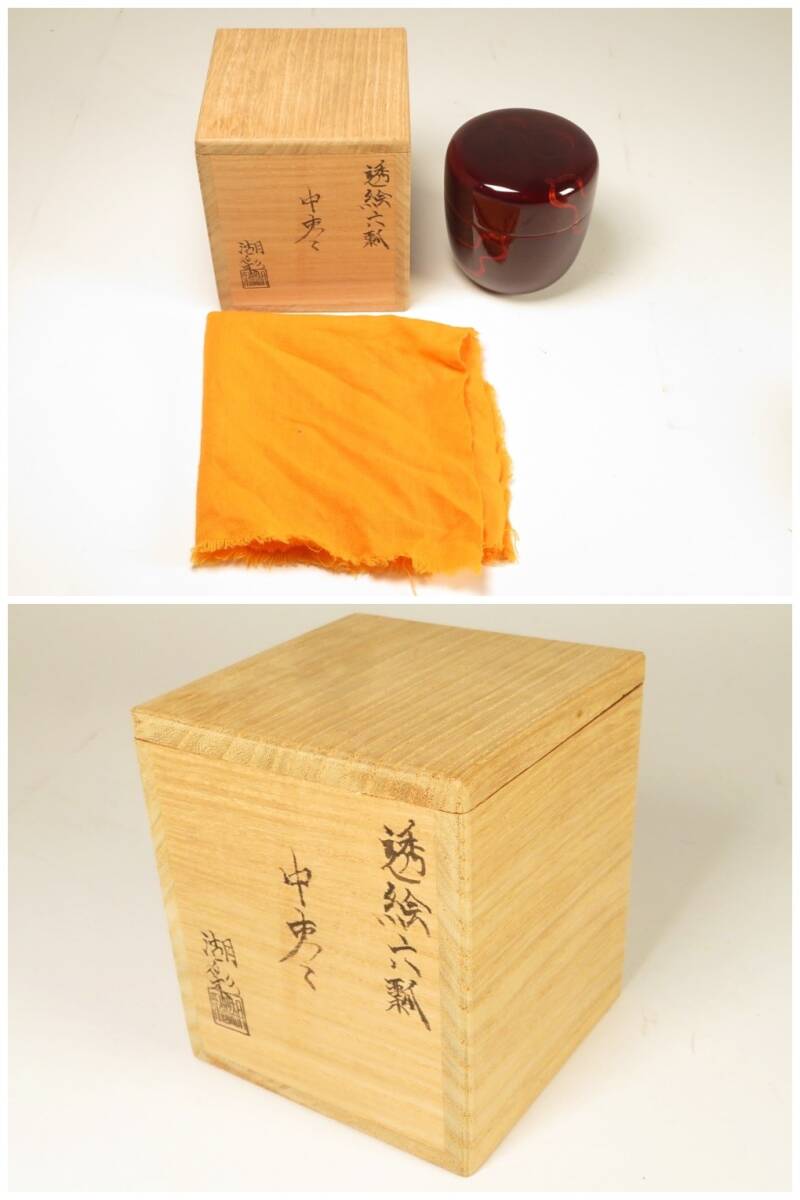 透絵六瓢
中棗
湖彩
透絵六瓢
中棗
湖彩